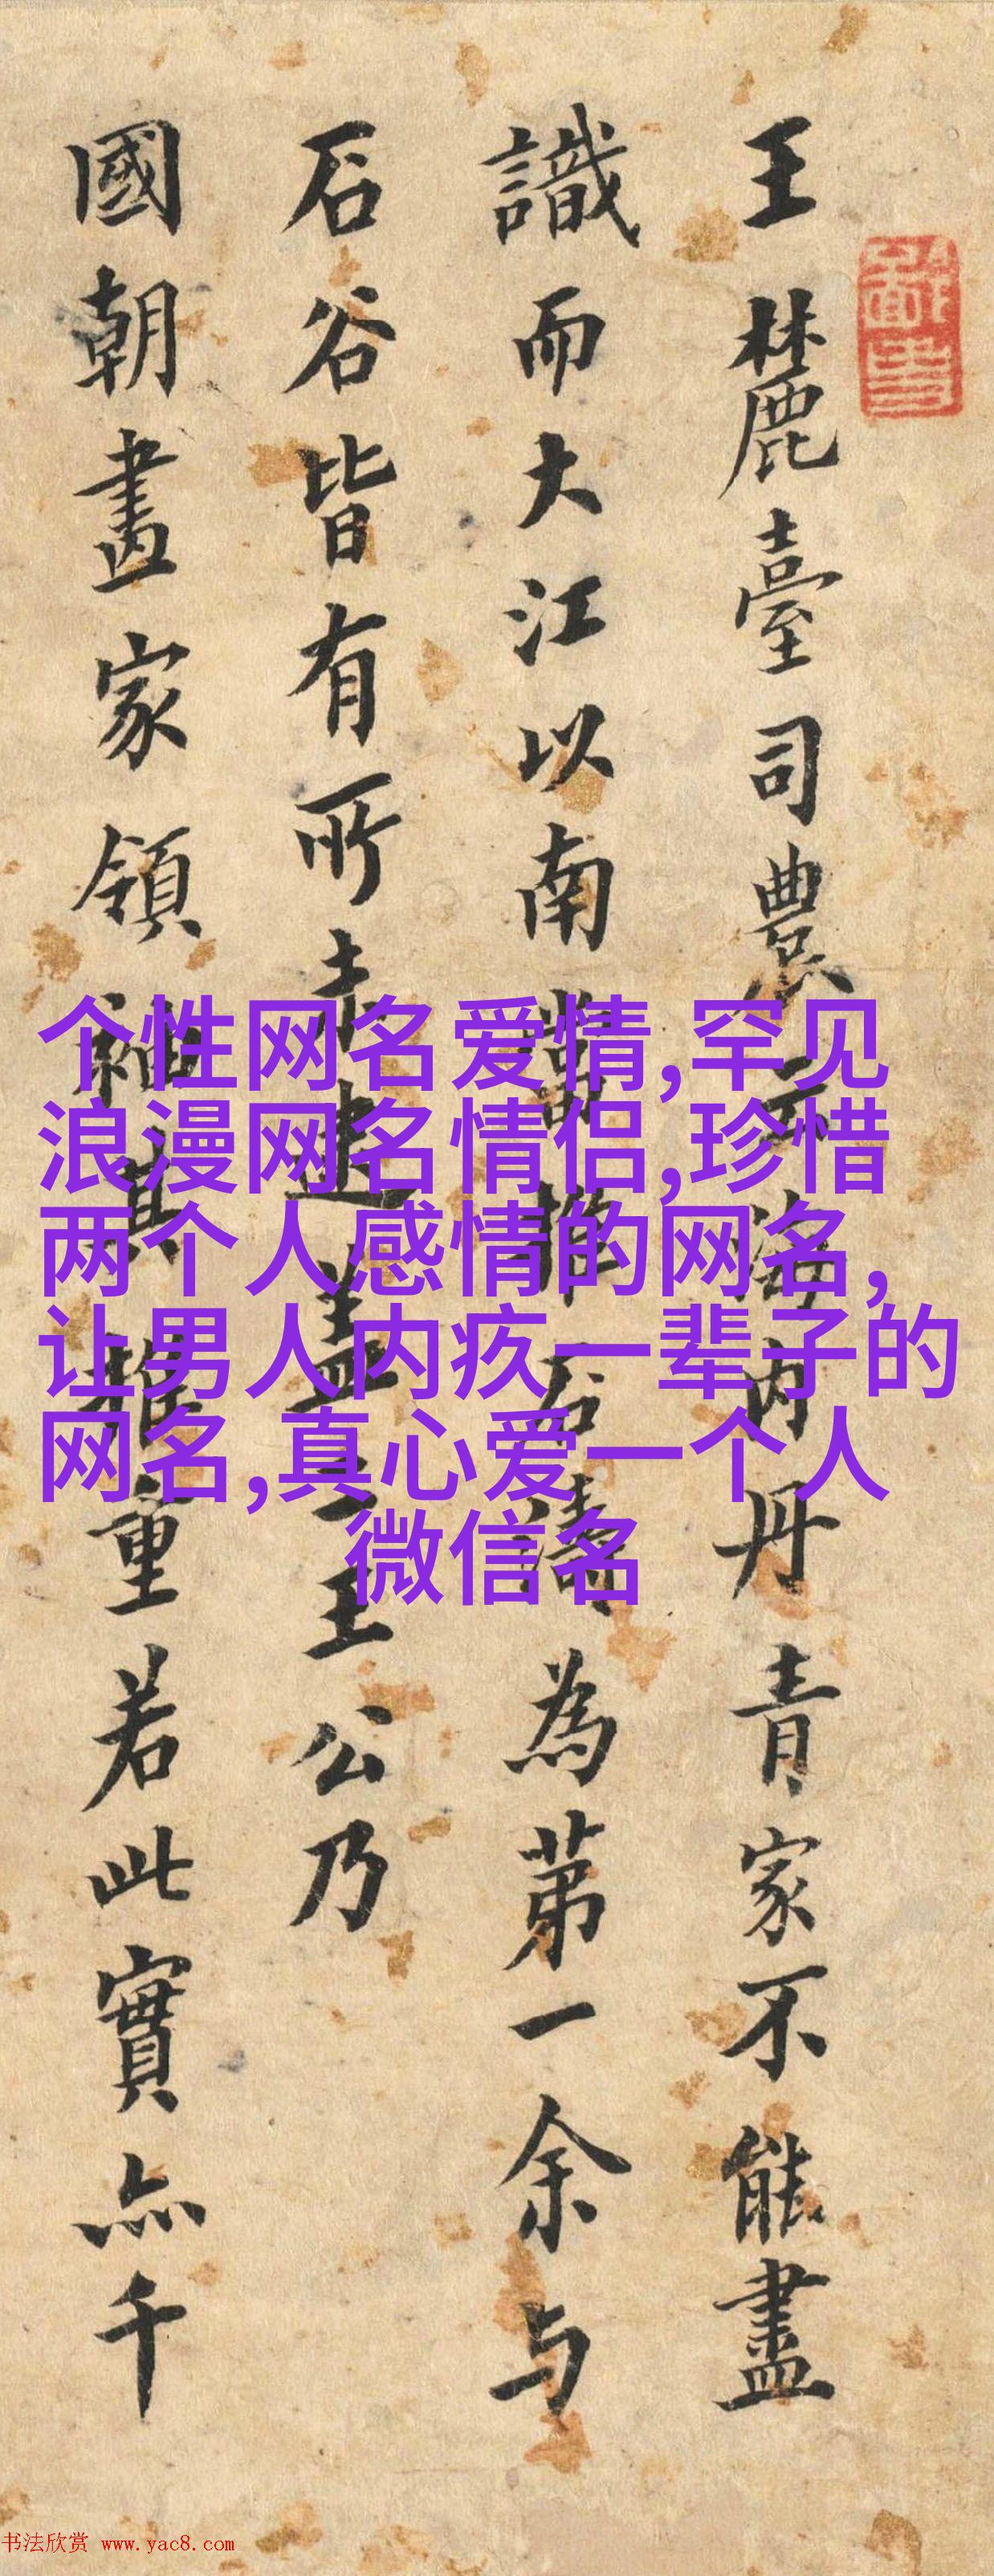 王麓臺司農云海内丹青家不能盡
識而大江以南當推石濤為第一余与
石谷皆有所未逮蓋二王公乃
國朝畫家領袖其推重若此實亦千
个性网名爱情,罕见
浪漫网名情侣,珍惜
两个人感情的网名,
让男人内疚一辈子的
网名,真心爱一个人
微信名
书法欣赏 www.yac8.com